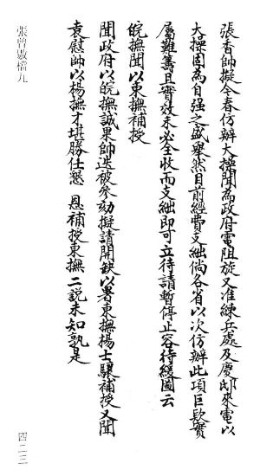 張香帥擬今春仿辦大操聞為政府電阻旋又准練兵處及慶邸來電以
大操固為自强之盛舉然目前經費支絀倘各省以次仿辦此項巨款實
屬難籌且實效未必全收而支絀即可立待請暫停止容待緩圖云
皖撫聞以東撫補授
聞政府以皖撫誠果帥迭被參劾擬請開缺以署東撫楊士驤補授又聞
袁慰帥以楊撫才堪勝任懇 恩補授東撫二説未知孰是
張曾敭檔九
四二三